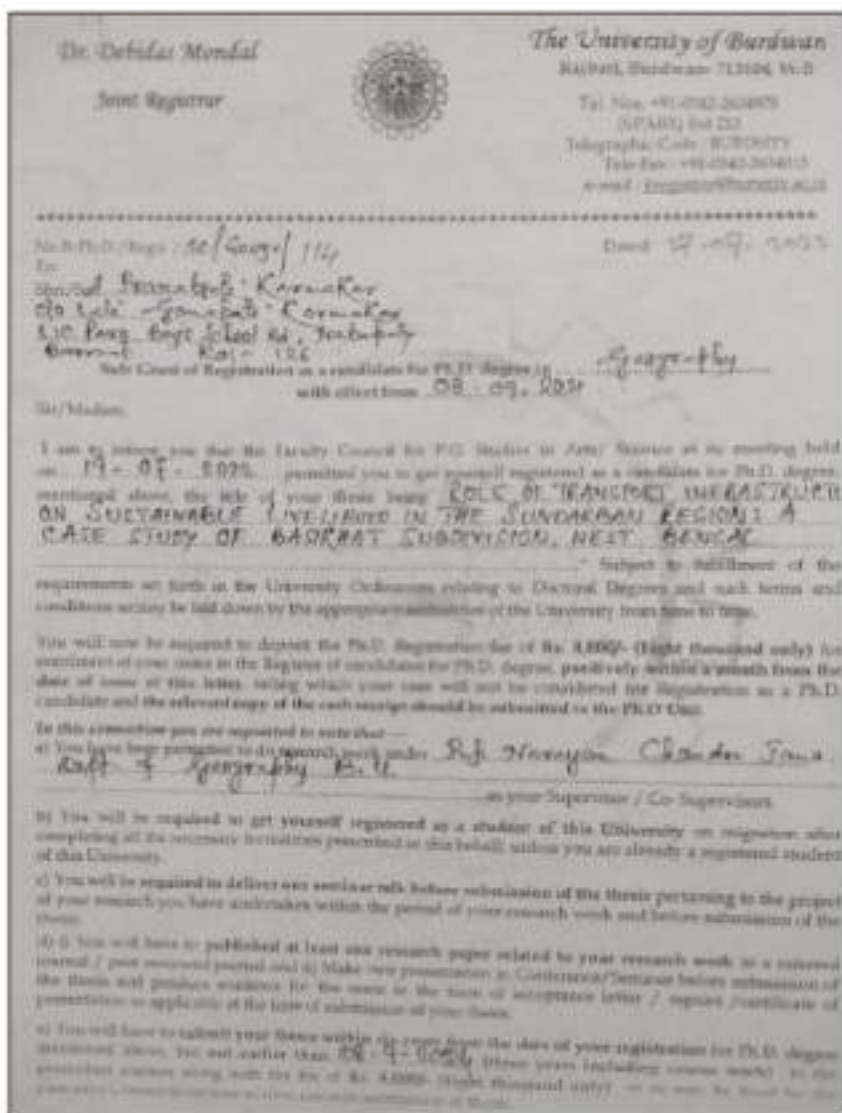 Dr. Debidas Mondal
Joint Registrar
The University of Burdwan
Rajbati, Burdwan- 713104, W.B
Tel. Nos. +91-0342-2634975
(EPABX) Ext 213
Telegraphic Code : BURDNITY
Tele-Fax : +91-0342-2634015
e-mail :
No.R-Ph.D./Regn : SC/Geogr/114
Dated 27-07-2022
To
Karmakar
C/o Late Karmakar
Boys School Rd.
Kol - 126
Sub: Grant of Registration as a candidate for Ph.D. degree in Geography
with effect from 08.09.2021
Sir/Madam,
I am to inform you that the Faculty Council for P.G. Studies in Arts/ Science at its meeting held
on 19-07-2022 permitted you to get yourself registered as a candidate for Ph.D. degree
mentioned above, the title of your thesis being ROLE OF TRANSPORT INFRASTRUCTURE
ON SUSTAINABLE LIVELIHOOD IN THE SUNDARBAN REGION: A
CASE STUDY OF BASIRHAT SUBDIVISION, WEST BENGAL
" Subject to fulfillment of the
requirements set forth in the University Ordinances relating to Doctoral Degrees and such terms and
conditions as may be laid down by the appropriate authorities of the University from time to time.
You will now be required to deposit the Ph.D. Registration fee of Rs. 8,000/- (Eight thousand only) for
enrolment of your name in the Register of candidates for Ph.D. degree, positively within a month from the
date of issue of this letter, failing which your case will not be considered for Registration as a Ph.D.
candidate and the relevant copy of the cash receipt should be submitted to the Ph.D Unit.
In this connection you are requested to note that —
a) You have been permitted to do research work under Prof. Narayan Chandra Jana
Dept of Geography B.U.
as your Supervisor / Co-Supervisors
b) You will be required to get yourself registered as a student of this University on migration after
completing all the necessary formalities prescribed in this behalf, unless you are already a registered student
of this University.
c) You will be required to deliver one seminar talk before submission of the thesis pertaining to the project
of your research you have undertaken within the period of your research work and before submission of the
thesis.
d) i) You will have to published at least one research paper related to your research work in a refereed
journal / peer reviewed journal and ii) Make two presentation in Conference/Seminar before submission of
the thesis and produce evidence for the same in the form of acceptance letter / reprint /certificate of
presentation as applicable at the time of submission of your thesis.
e) You will have to submit your thesis within six years from the date of your registration for Ph.D. degree
mentioned above, but not earlier than 08-9-2024 (three years including course work) in the
prescribed manner along with the fee of Rs. 8,000/- (Eight thousand only)